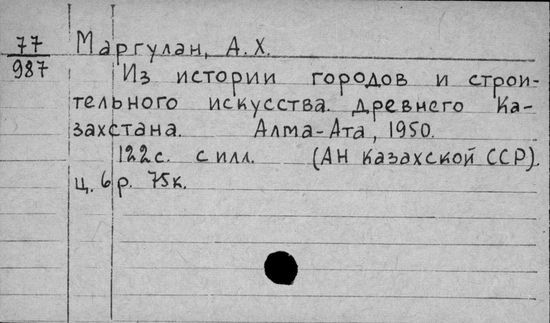 77 Маргулан, А. Х.
987
Из истории городов и строи-
тельного искусства. Древнего Ка-
захстана. Алма-Ата, 1950.
122с. с илл. (АН Казахской ССР).
ц. 6 р. 75к.